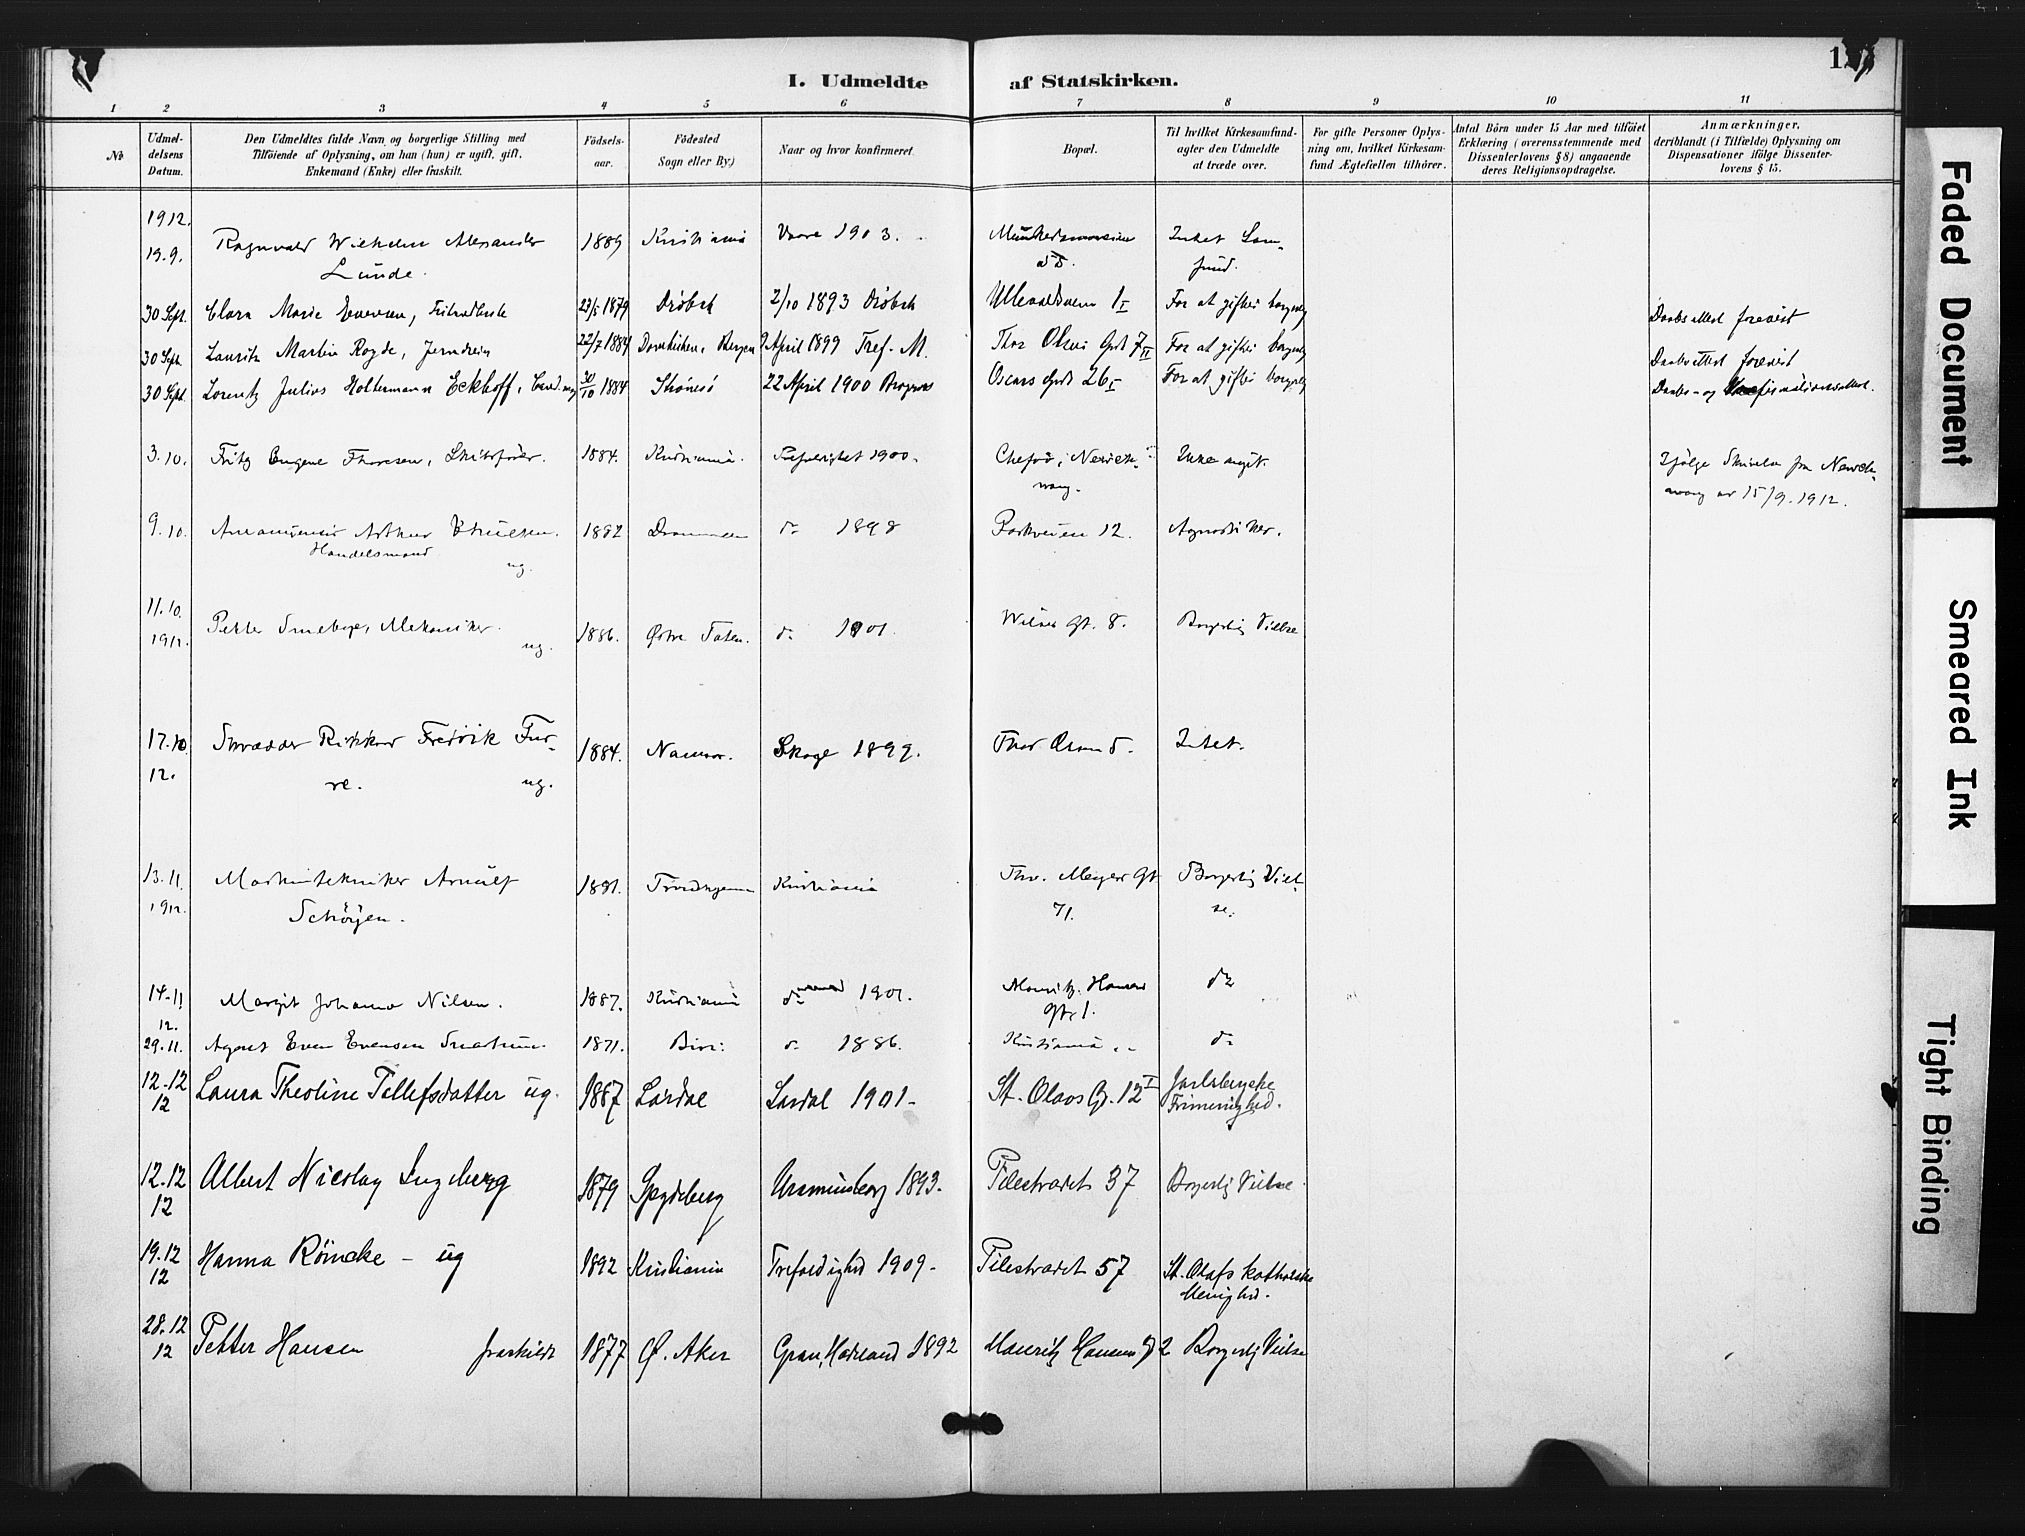 I. Udmeldte af Statskirken.
1 2 3 4 5 6 7 8 9 10 11
No
Udmel-
delsens
Datum.
Den Udmeldtes fulde Navn og borgerlige Stilling med
Tilföiende af Oplysning, om han (hun) er ugift, gift,
Enkemand (Enke) eller fraskilt.
Födsels-
aar.
Födested
Sogn eller By.)
Naar og hvor konfirmeret.
Bopæl.
Til hvilket Kirkesamfund-
agter den Udmeldte
at træde over.
For gifte Personer Oplys-
ning om, hvilket Kirkesam-
fund Ægtefællen tilhörer.
Antal Börn under 15 Aar med tilföiet
Erklæring (overensstemmende med
Dissenterlovens § 8) angaaende
deres Religionsopdragelse.
Anmærkninger,
deriblandt (i Tilfælde) Oplysning om
Dispensationer ifölge Dissenter-
lovens § 15.
1912.
19.9. Ragnvald Wilhelm Alexander 1889 Kristiania 1903. Intet Sam-
Lunde. fund.
30 Sept. Clara Marie 1879 Drøbak 2/10 1893 Drøbak Ullevaldsveien 1 I For at giftes borgerlig Daabsattest forevist
30 Sept. Lauritz Martin Røyde, Jerndreier 22/7 1884 Domkirken, Bergen 9 April 1899 Tref. M. Thor Olsens Gade 7 II For at giftes borgerlig Daabsattest forevist
30 Sept. Lorentz Julius Holtermann Eckhoff, 30/10 1884 22 April 1900 Oscars Gade 26 I For at giftes borgerlig Daabs- og
3.10. Fritz Eugene Thoresen, Skibsfører. 1884. Kristiania. Trefoldighet 1900. Chefoo, Ikke angit. Ifølge Skrivelse fra
15/9. 1912.
9.10. Arthur 1882 Drammen do 1898 Parkveien 12. Agnostiker.
Handelsmand
ug.
11.10.
1912. Petter Mekaniker. 1886. Østre Toten. do 1901. Gt. 8. Borgerlig Vielse
ug.
17.10. Skrædder Rikkard Fredrik Fur- 1884. Namsos. 1899. Thor Olsens 5. Intet.
12. re. ug.
13.11. Maskintekniker Arnulf 1881. Trondhjem Kristiania Thv. Meyers Gt Borgerlig Viel-
1912. Schøyen. 71. se.
14-11 Margit Johanne Nilsen. 1887. Kristiania do 1901. Mauritz Hansens do
12. Gt. 1.
29.11. Agent Even Evensen 1871. Biri. do 1886. Kristiania do
12.12 Laura Theoline Tellefsdatter ug. 1887 Lardal Lardal 1901. St. Olavs G. 12 I Jarlsbergske
12 Frimenighed.
12.12 Albert Nicolay Ingeberg 1879 Spydeberg 1893. Pilestrædet 37 Borgerlig Vielse
12
19.12 Hanna Röincke - ug 1892 Kristiania Trefoldighed 1909. Pilestrædet 57 St. Olafs katholske
12 Menighed.
28.12 Petter Hansen fraskildt 1877 Ø. Aker Gran, Hadeland 1892 Mauritz Hansens G 2 Borgerlig Vielse
12
Faded Document
Smeared Ink
Tight Binding